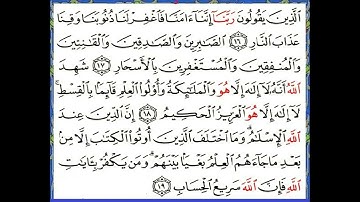 ٱلَّذِينَ يَقُولُونَ رَبَّنَآ إِنَّنَآ ءَامَنَّا فَٱغْفِرْ لَنَا ذُنُوبَنَا وَقِنَا
عَذَابَ ٱلنَّارِ ١٦ ٱلصَّٰبِرِينَ وَٱلصَّٰدِقِينَ وَٱلْقَٰنِتِينَ
وَٱلْمُنفِقِينَ وَٱلْمُسْتَغْفِرِينَ بِٱلْأَسْحَارِ ١٧ شَهِدَ
ٱللَّهُ أَنَّهُۥ لَآ إِلَٰهَ إِلَّا هُوَ وَٱلْمَلَٰٓئِكَةُ وَأُو۟لُوا۟ ٱلْعِلْمِ قَآئِمًۢا بِٱلْقِسْطِ
لَآ إِلَٰهَ إِلَّا هُوَ ٱلْعَزِيزُ ٱلْحَكِيمُ ١٨ إِنَّ ٱلدِّينَ عِندَ
ٱللَّهِ ٱلْإِسْلَٰمُ وَمَا ٱخْتَلَفَ ٱلَّذِينَ أُوتُوا۟ ٱلْكِتَٰبَ إِلَّا مِنۢ
بَعْدِ مَا جَآءَهُمُ ٱلْعِلْمُ بَغْيًۢا بَيْنَهُمْ وَمَن يَكْفُرْ بِـَٔايَٰتِ
ٱللَّهِ فَإِنَّ ٱللَّهَ سَرِيعُ ٱلْحِسَابِ ١٩